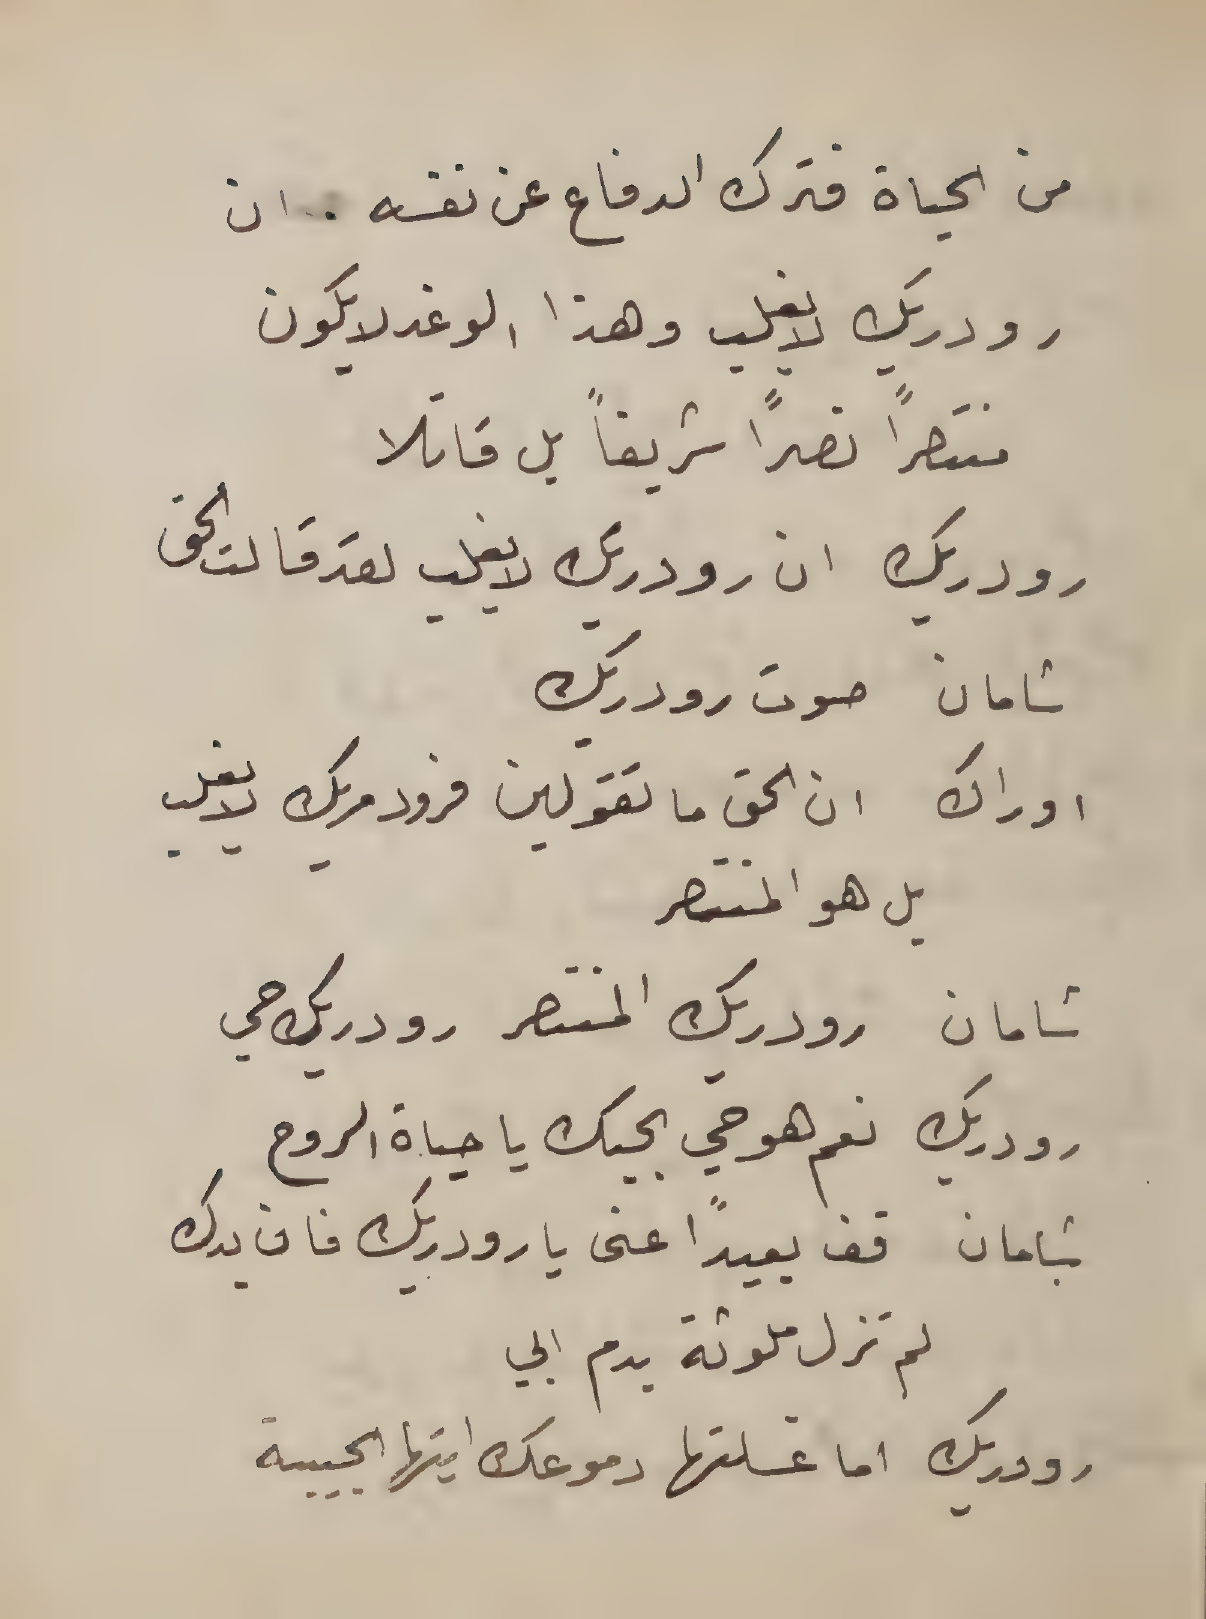 من الحياة فترك الدفاع عن نفسه .. ان
رودريك لا يغلب وهذا الوغد لا يكون
منتصراً نصراً شريفاً بل قاتلا
رودريك ان رودريك لا يغلب لقد قالت الحق
شامان صوت رودريك
اوراك ان الحق ما تقولين فرودريك لا يغلب
بل هو المنتصر
شامان رودريك المنتصر رودريك حي
رودريك نعم هو حي بحبك يا حياة الروح
شامان قف بعيداً عنى يا رودريك فان يدك
لم تزل ملوثة بدم ابي
رودريك اما غسلتها دموعك ايتها الحبيبة